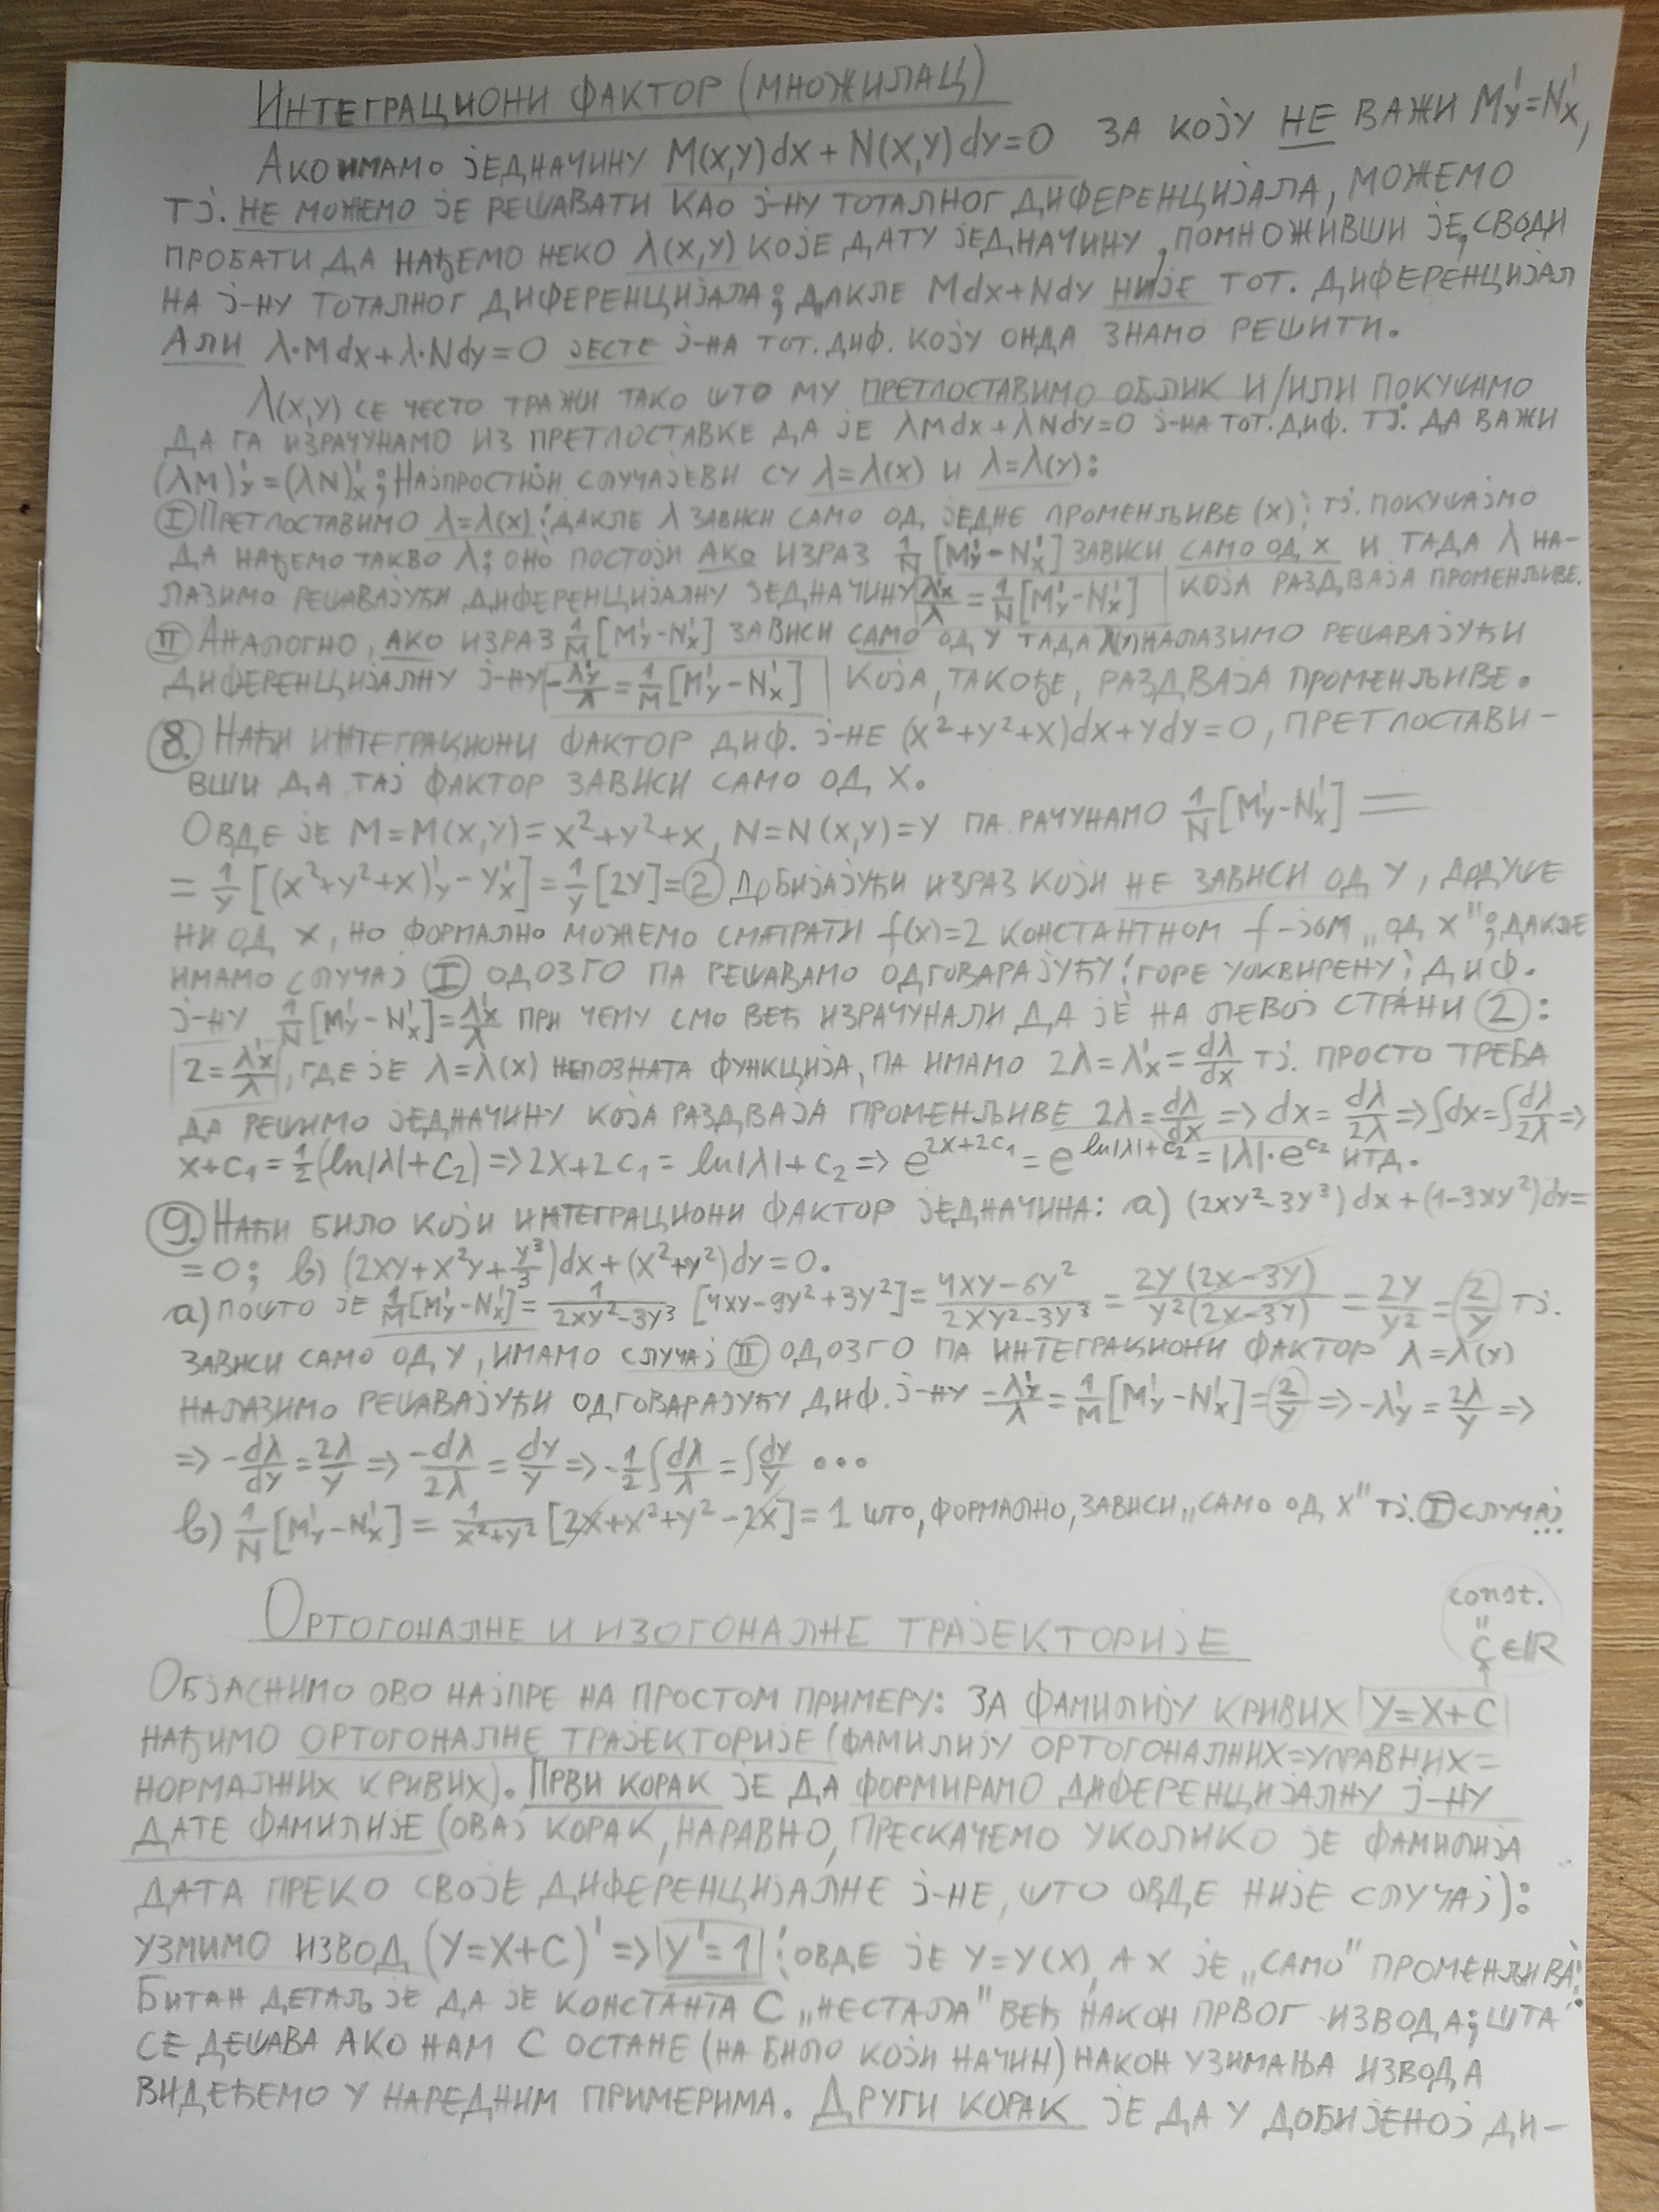 ИНТЕГРАЦИОНИ ФАКТОР (МНОЖИЛАЦ)
АКО ИМАМО ЈЕДНАЧИНУ M(x,y)dx + N(x,y)dy=0 ЗА КОЈУ НЕ ВАЖИ M'y=N'x,
ТЈ. НЕ МОЖЕМО ЈЕ РЕШАВАТИ КАО Ј-НУ ТОТАЛНОГ ДИФЕРЕНЦИЈАЛА, МОЖЕМО
ПРОБАТИ ДА НАЂЕМО НЕКО λ(x,y) КОЈЕ ДАТУ ЈЕДНАЧИНУ, ПОМНОЖИВШИ ЈЕ, СВОДИ
НА Ј-НУ ТОТАЛНОГ ДИФЕРЕНЦИЈАЛА; ДАКЛЕ Mdx+Ndy НИЈЕ ТОТ. ДИФЕРЕНЦИЈАЛ
АЛИ λ·Mdx+λ·Ndy=0 ЈЕСТЕ Ј-НА ТОТ. ДИФ. КОЈУ ОНДА ЗНАМО РЕШИТИ.
λ(x,y) СЕ ЧЕСТО ТРАЖИ ТАКО ШТО МУ ПРЕТПОСТАВИМО ОБЛИК И/ИЛИ ПОКУШАМО
ДА ГА ИЗРАЧУНАМО ИЗ ПРЕТПОСТАВКЕ ДА ЈЕ λMdx+λNdy=0 Ј-НА ТОТ. ДИФ. ТЈ. ДА ВАЖИ
(λM)'y=(λN)'x; НАЈПРОСТИЈИ СЛУЧАЈЕВИ СУ λ=λ(x) И λ=λ(y):
Ⅰ ПРЕТПОСТАВИМО λ=λ(x) ¦ ДАКЛЕ λ ЗАВИСИ САМО ОД ЈЕДНЕ ПРОМЕНЉИВЕ (x) ¦ ТЈ. ПОКУШАЈМО
ДА НАЂЕМО ТАКВО λ; ОНО ПОСТОЈИ АКО ИЗРАЗ 1/N [M'y-N'x] ЗАВИСИ САМО ОД x И ТАДА λ НА-
ЛАЗИМО РЕШАВАЈУЋИ ДИФЕРЕНЦИЈАЛНУ ЈЕДНАЧИНУ λ'x/λ = 1/N [M'y-N'x] КОЈА РАЗДВАЈА ПРОМЕНЉИВЕ.
Ⅱ АНАЛОГНО, АКО ИЗРАЗ 1/M [M'y-N'x] ЗАВИСИ САМО ОД y ТАДА НАЛАЗИМО РЕШАВАЈУЋИ
ДИФЕРЕНЦИЈАЛНУ Ј-НУ -λ'y/λ = 1/M [M'y-N'x] КОЈА, ТАКОЂЕ, РАЗДВАЈА ПРОМЕНЉИВЕ.
8. НАЋИ ИНТЕГРАЦИОНИ ФАКТОР ДИФ. Ј-НЕ (x²+y²+x)dx+ydy=0, ПРЕТПОСТАВИ-
ВШИ ДА ТАЈ ФАКТОР ЗАВИСИ САМО ОД x.
ОВДЕ ЈЕ M=M(x,y)=x²+y²+x, N=N(x,y)=y ПА РАЧУНАМО 1/N [M'y-N'x] =
= 1/y [(x²+y²+x)'y - y'x] = 1/y [2y] = 2 ДОБИЈАЈУЋИ ИЗРАЗ КОЈИ НЕ ЗАВИСИ ОД y, ДОДУШЕ
НИ ОД x, НО ФОРМАЛНО МОЖЕМО СМАТРАТИ f(x)=2 КОНСТАНТНОМ f-ЈОМ „ОД x"; ДАКЛЕ
ИМАМО СЛУЧАЈ Ⅰ ОДОЗГО ПА РЕШАВАМО ОДГОВАРАЈУЋУ ¦ ГОРЕ УОКВИРЕНУ ¦ ДИФ.
Ј-НУ 1/N [M'y-N'x] = λ'x/λ ПРИ ЧЕМУ СМО ВЕЋ ИЗРАЧУНАЛИ ДА ЈЕ НА ЛЕВОЈ СТРАНИ 2:
2=λ'x/λ, ГДЕ ЈЕ λ=λ(x) НЕПОЗНАТА ФУНКЦИЈА, ПА ИМАМО 2λ=λ'x=dλ/dx ТЈ. ПРОСТО ТРЕБА
ДА РЕШИМО ЈЕДНАЧИНУ КОЈА РАЗДВАЈА ПРОМЕНЉИВЕ 2λ=dλ/dx => dx=dλ/2λ => ∫dx=∫dλ/2λ =>
x+c₁=1/2(ln|λ|+c₂) => 2x+2c₁=ln|λ|+c₂ => e^(2x+2c₁) = e^(ln|λ|+c₂) = |λ|·e^c₂ ИТД.
9. НАЋИ БИЛО КОЈИ ИНТЕГРАЦИОНИ ФАКТОР ЈЕДНАЧИНА: а) (2xy²-3y³)dx+(1-3xy²)dy=
=0; в) (2xy+x²y+y³/3)dx+(x²+y²)dy=0.
а) ПОШТО ЈЕ 1/M [M'y-N'x] = 1/(2xy²-3y³) [4xy-9y²+3y²] = (4xy-6y²)/(2xy²-3y³) = 2y(2x-3y)/(y²(2x-3y)) = 2y/y² = 2/y ТЈ.
ЗАВИСИ САМО ОД y, ИМАМО СЛУЧАЈ Ⅱ ОДОЗГО ПА ИНТЕГРАЦИОНИ ФАКТОР λ=λ(y)
НАЛАЗИМО РЕШАВАЈУЋИ ОДГОВАРАЈУЋУ ДИФ. Ј-НУ -λ'y/λ = 1/M [M'y-N'x] = 2/y => -λ'y = 2λ/y =>
=> -dλ/dy = 2λ/y => -dλ/2λ = dy/y => -1/2 ∫dλ/λ = ∫dy/y ...
в) 1/N [M'y-N'x] = 1/(x²+y²) [2x+x²+y²-2x] = 1 ШТО, ФОРМАЛНО, ЗАВИСИ „САМО ОД x" ТЈ. Ⅰ СЛУЧАЈ...
ОРТОГОНАЛНЕ И ИЗОГОНАЛНЕ ТРАЈЕКТОРИЈЕ
const.
"
C∈ℝ
ОБЈАСНИМО ОВО НАЈПРЕ НА ПРОСТОМ ПРИМЕРУ: ЗА ФАМИЛИЈУ КРИВИХ y=x+C
НАЂИМО ОРТОГОНАЛНЕ ТРАЈЕКТОРИЈЕ (ФАМИЛИЈУ ОРТОГОНАЛНИХ=УПРАВНИХ=
НОРМАЛНИХ КРИВИХ). ПРВИ КОРАК ЈЕ ДА ФОРМИРАМО ДИФЕРЕНЦИЈАЛНУ Ј-НУ
ДАТЕ ФАМИЛИЈЕ (ОВАЈ КОРАК, НАРАВНО, ПРЕСКАЧЕМО УКОЛИКО ЈЕ ФАМИЛИЈА
ДАТА ПРЕКО СВОЈЕ ДИФЕРЕНЦИЈАЛНЕ Ј-НЕ, ШТО ОВДЕ НИЈЕ СЛУЧАЈ):
УЗМИМО ИЗВОД (y=x+C)' => y'=1 ¦ ОВДЕ ЈЕ y=y(x), А x ЈЕ „САМО" ПРОМЕНЉИВА ¦.
БИТАН ДЕТАЉ ЈЕ ДА ЈЕ КОНСТАНТА C „НЕСТАЛА" ВЕЋ НАКОН ПРВОГ ИЗВОДА; ШТА
СЕ ДЕШАВА АКО НАМ C ОСТАНЕ (НА БИЛО КОЈИ НАЧИН) НАКОН УЗИМАЊА ИЗВОДА
ВИДЕЋЕМО У НАРЕДНИМ ПРИМЕРИМА. ДРУГИ КОРАК ЈЕ ДА У ДОБИЈЕНОЈ ДИ-